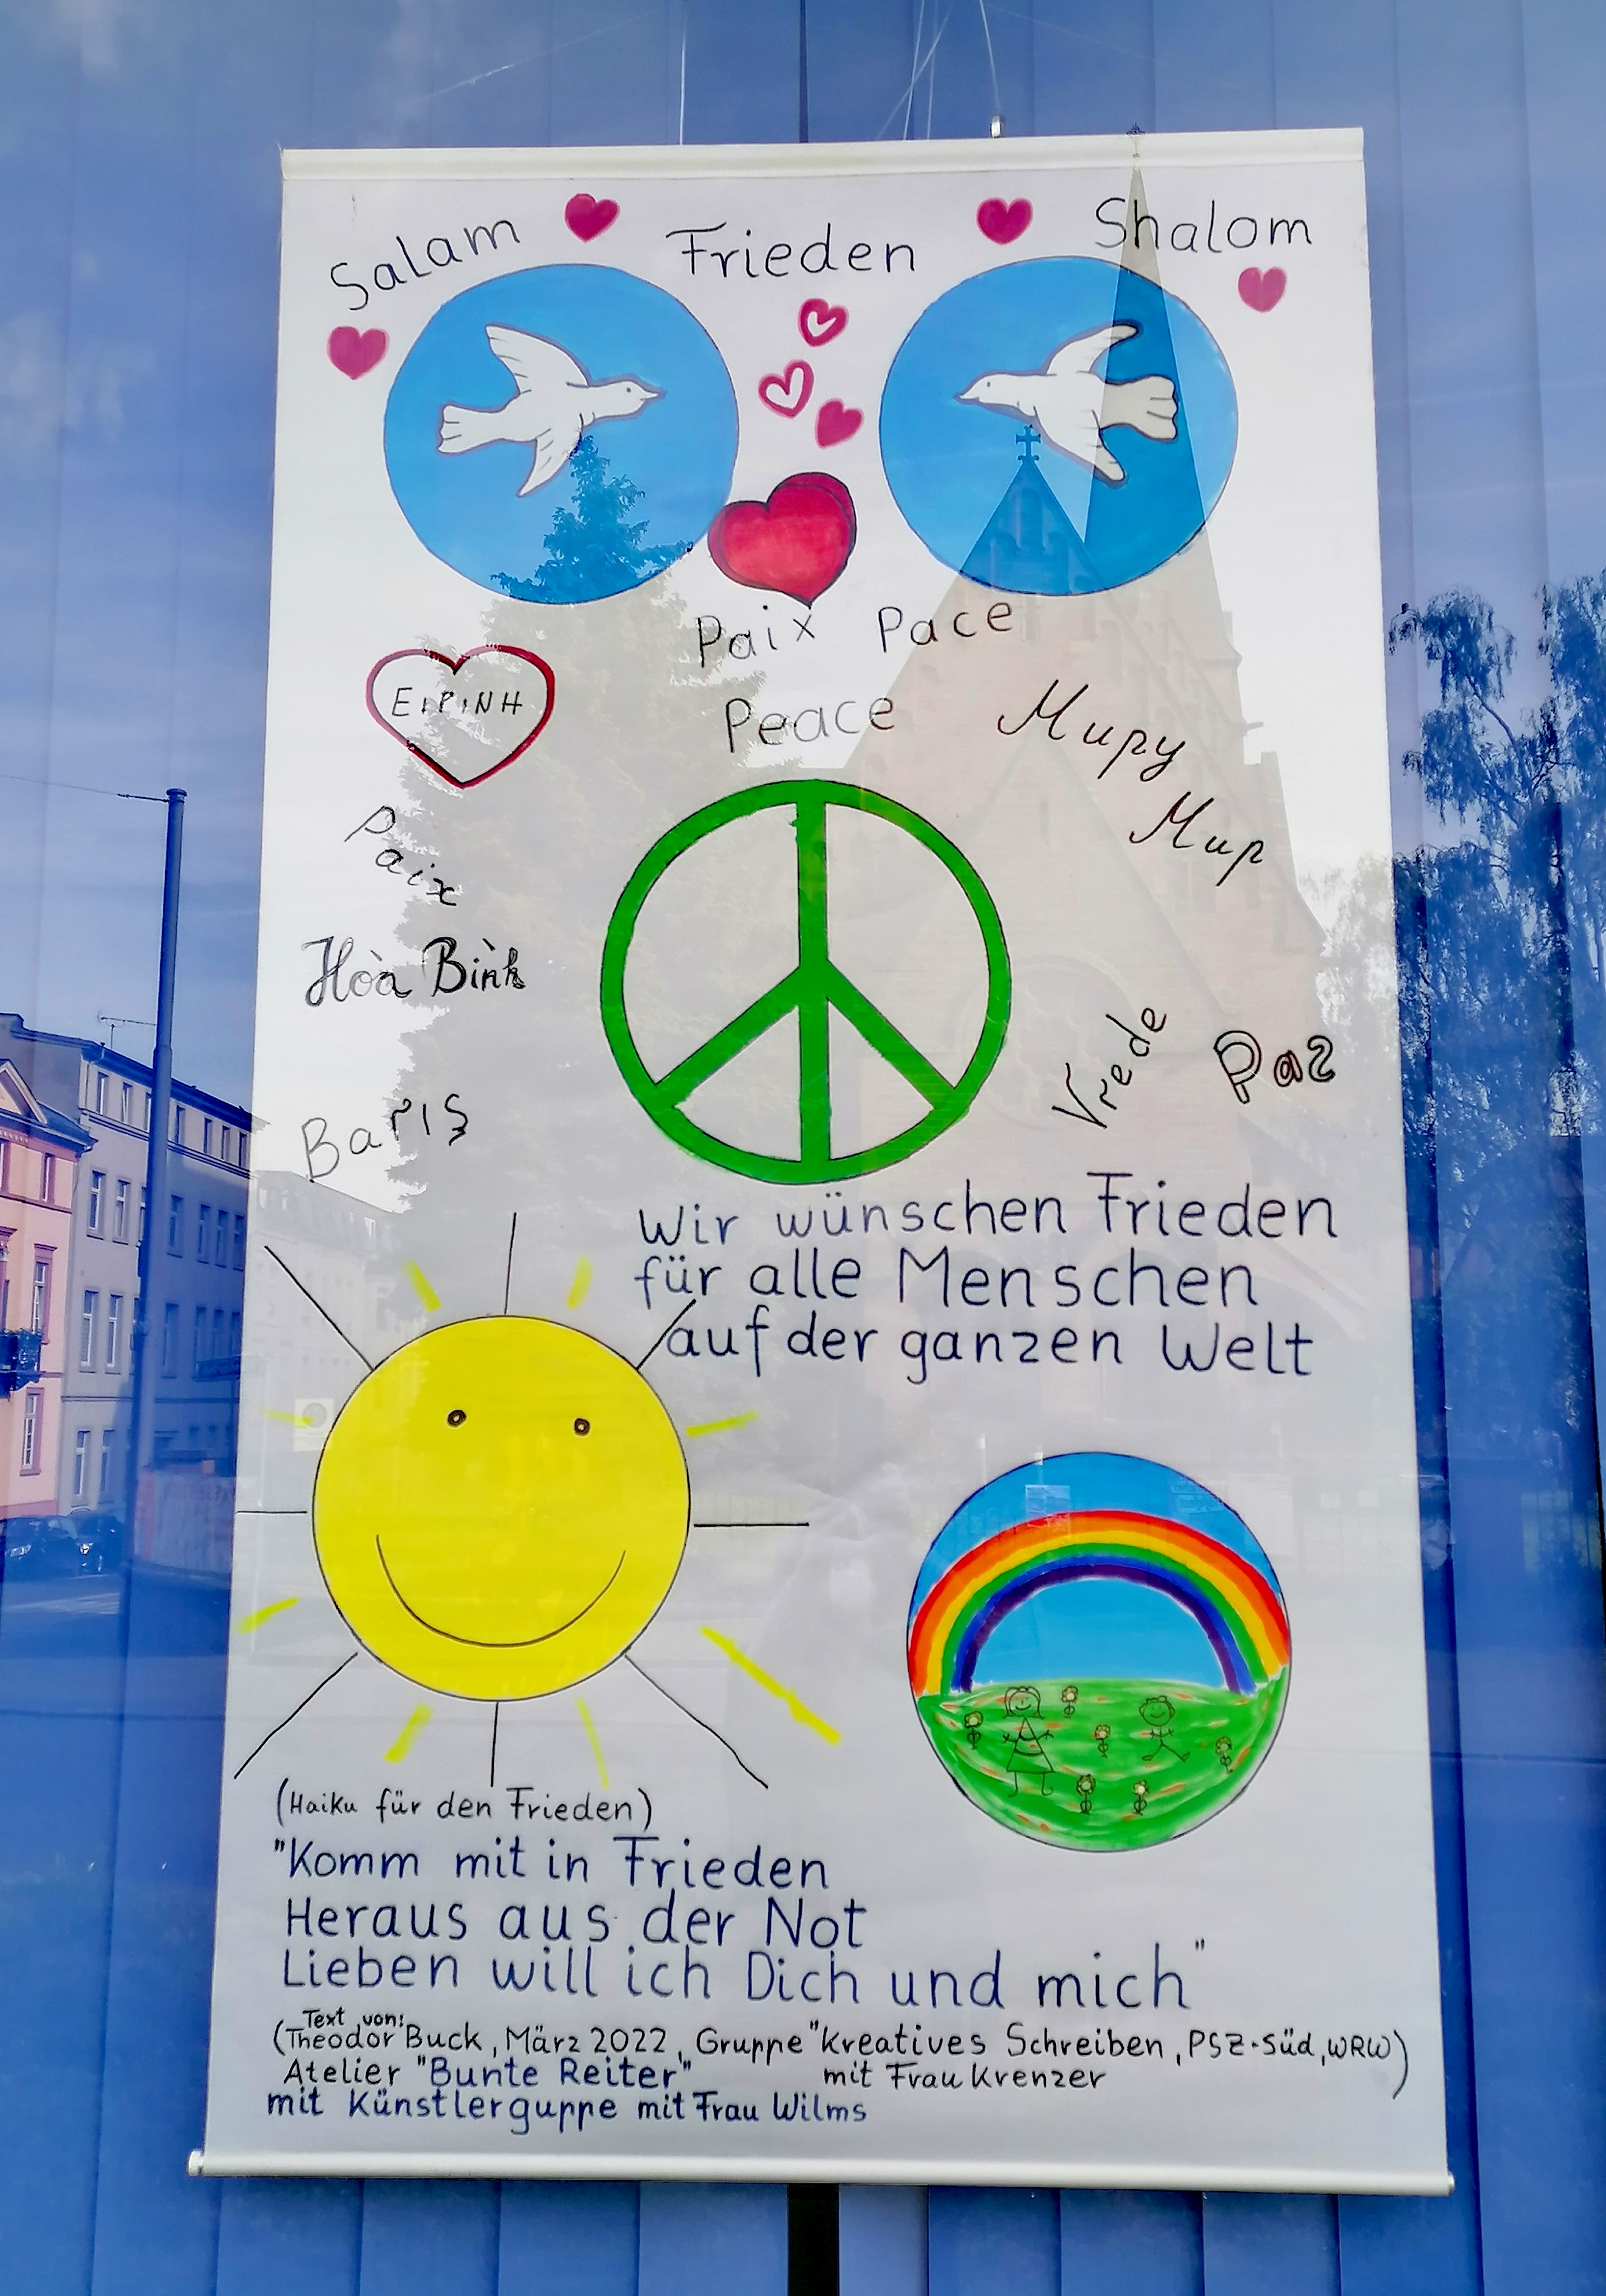 Salam
Frieden
Shalom
Paix Pace
EIPINH
Peace
Миру
Мир
Paix
Hòa Bình
Vrede
Paz
Barış
Wir wünschen Frieden
für alle Menschen
auf der ganzen Welt
(Haiku für den Frieden)
"Komm mit in Frieden
Heraus aus der Not
Lieben will ich Dich und mich"
(Text von:
Theodor Buck, März 2022, Gruppe "Kreatives Schreiben, PSZ-Süd, WRW)
Atelier "Bunte Reiter" mit Frau Krenzer
mit Künstlerguppe mit Frau Wilms